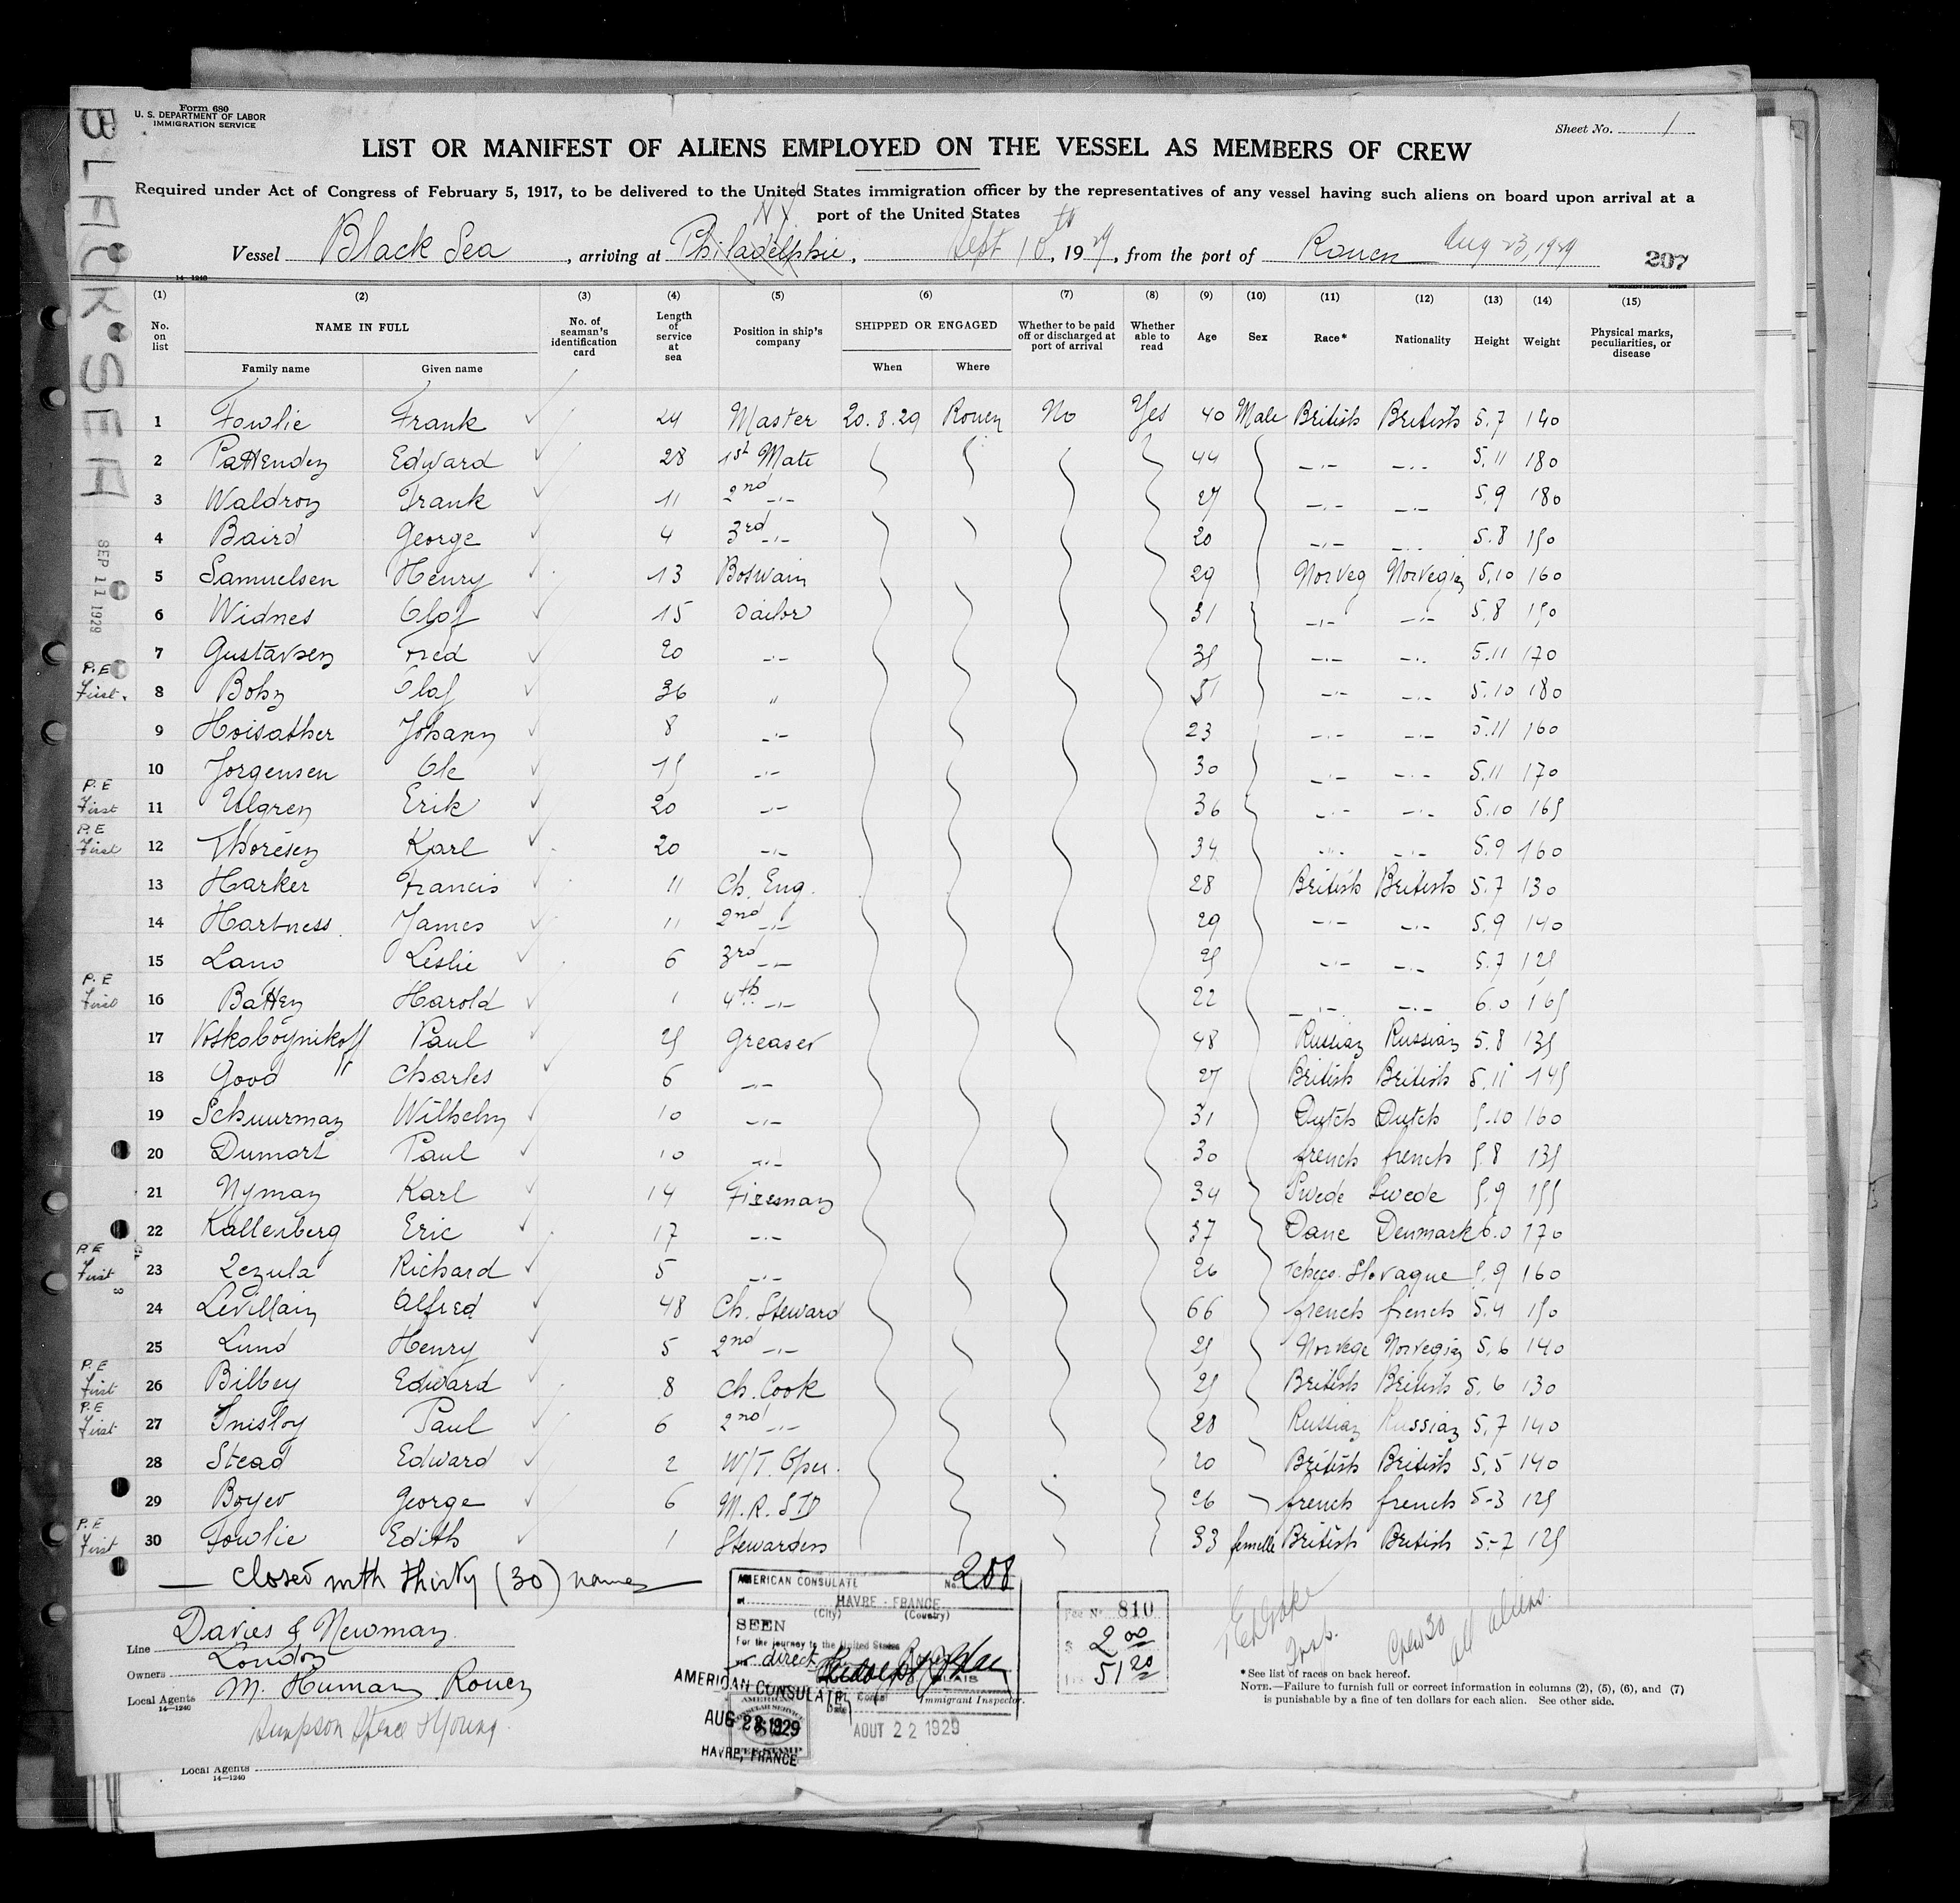 Form 680
U. S. DEPARTMENT OF LABOR
IMMIGRATION SERVICE
Sheet No. 1
LIST OR MANIFEST OF ALIENS EMPLOYED ON THE VESSEL AS MEMBERS OF CREW
Required under Act of Congress of February 5, 1917, to be delivered to the United States immigration officer by the representatives of any vessel having such aliens on board upon arrival at a
port of the United States
NY
Vessel Black Sea, arriving at Philadelphie, Sept 10th, 1929, from the port of Rouen Aug 23, 1929
207
14-1240
BLACK SEA
SEP 11 1929
(1) (2) (3) (4) (5) (6) (7) (8) (9) (10) (11) (12) (13) (14) (15)
No. on list NAME IN FULL No. of seaman's identification card Length of service at sea Position in ship's company SHIPPED OR ENGAGED Whether to be paid off or discharged at port of arrival Whether able to read Age Sex Race* Nationality Height Weight Physical marks, peculiarities, or disease
Family name Given name When Where
1 Fowlie Frank 24 Master 20.8.29 Rouen No Yes 40 Male British British 5.7 140
2 Pattenden Edward 28 1st Mate 44 -"- -"- 5.11 180
3 Waldron Frank 11 2nd -"- 27 -"- -"- 5.9 180
4 Baird George 4 3rd -"- 20 -"- -"- 5.8 150
5 Samuelsen Henry 13 Boswain 29 Norveg Norvegian 5.10 160
6 Widnes Olof 15 Sailor 31 -"- -"- 5.8 150
7 Gustavsen Fred 20 -"- 35 -"- -"- 5.11 170
P.E First. 8 Bohn Olaf 36 " 51 -"- -"- 5.10 180
9 Hoisather Johann 8 -"- 23 -"- -"- 5.11 160
10 Jorgensen Ole 15 -"- 30 -"- -"- 5.11 170
P.E First 11 Ulgren Erik 20 -"- 36 -"- -"- 5.10 165
P.E First 12 Thoresen Karl 20 -"- 34 -"- -"- 5.9 160
13 Harker Francis 11 Ch. Eng. 28 British British 5.7 130
14 Hartness James 11 2nd -"- 29 -"- -"- 5.9 140
15 Lano Leslie 6 3rd -"- 25 -"- -"- 5.7 125
P.E First 16 Batten Harold 1 4th -"- 22 -"- -"- 6.0 165
17 Voskoboynikoff Paul 25 Greaser 48 Russian Russian 5.8 135
18 Good Charles 6 -"- 27 British British 5.11 145
19 Schuurman Wilhelm 10 -"- 31 Dutch Dutch 5.10 160
20 Dumort Paul 10 -"- 30 french french 5.8 135
21 Nyman Karl 14 Fireman 34 Swede Swede 5.9 155
22 Kallenberg Eric 17 -"- 37 Dane Denmark 6.0 170
P.E First 23 Zezula Richard 5 -"- 26 Tcheco-Slovaque 5.9 160
24 Levillain Alfred 48 Ch. Steward 66 french french 5.4 150
25 Lund Henry 5 2nd -"- 25 Norvege Norvegian 5.6 140
P.E First 26 Bilbey Edward 8 Ch. Cook 25 British British 5.6 130
P.E First 27 Paul 6 2nd -"- 28 Russian Russian 5.7 140
28 Stead Edward 2 W/T. Oper. 20 British British 5.5 140
29 Boyer George 6 M.R. STD 26 french french 5-3 125
P.E First 30 Fowlie Edith 1 Stewardess 33 femelle British British 5-7 125
closed with thirty (30) names
Line Davies & Newman
Owners London
Local Agents M. Humann Rouen
14-1240
Simpson Spence & Young
Local Agents
14-1240
AMERICAN CONSULATE No. 208
at HAVRE - FRANCE
(City) (Country)
SEEN
For the journey to the United States
via direct
Immigrant Inspector.
Date AOUT 22 1929
AMERICAN CONSULATE
AUG 23 1929
HAVRE, FRANCE
Fee No 810
$ 2 00
51 20
Insp.
Crew 30
all aliens.
*See list of races on back hereof.
NOTE.—Failure to furnish full or correct information in columns (2), (5), (6), and (7)
is punishable by a fine of ten dollars for each alien. See other side.